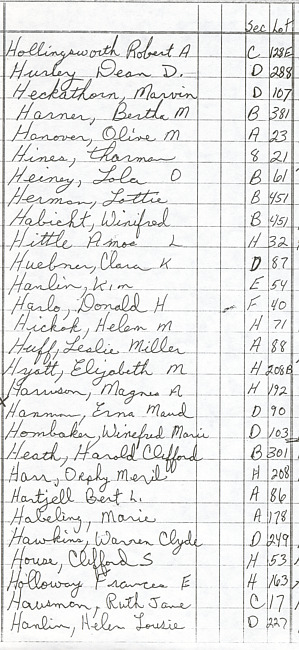 Sec Lot
Hollingsworth Robert A C 128E
Hurley Dean D. D 288
Heckathorn, Marvin D 107
Harner, Bertha M B 381
Hanover, Olive M A 23
Hines, Tharman 8 21
Heiney, Lola O B 61
Herman, Lottie B 451
Habicht, Winifred B 451
Hittle Amos L H 32
Huebner, Clara K D 87
Hanlin, Kim E 54
Harlo, Donald H F 40
Hickok, Helem M H 71
Huff, Leslie Miller A 88
Hyatt, Elizabeth M H 208B
Harrison, Magnes A H 192
Hamman, Erna Maud D 90
Hombaker, Winefred Marie D 103
Heath, Harold Clifford B 301
Harr, Orphy Meril H 208
Hartzell Bert L. A 86
Habeling, Marie A 178
Hawkins, Warren Clyde D 249
House, Clifford S H 53
Holloway Frances E H 163
Hausman, Ruth Jane C 17
Hanlin, Helen Lousie D 227